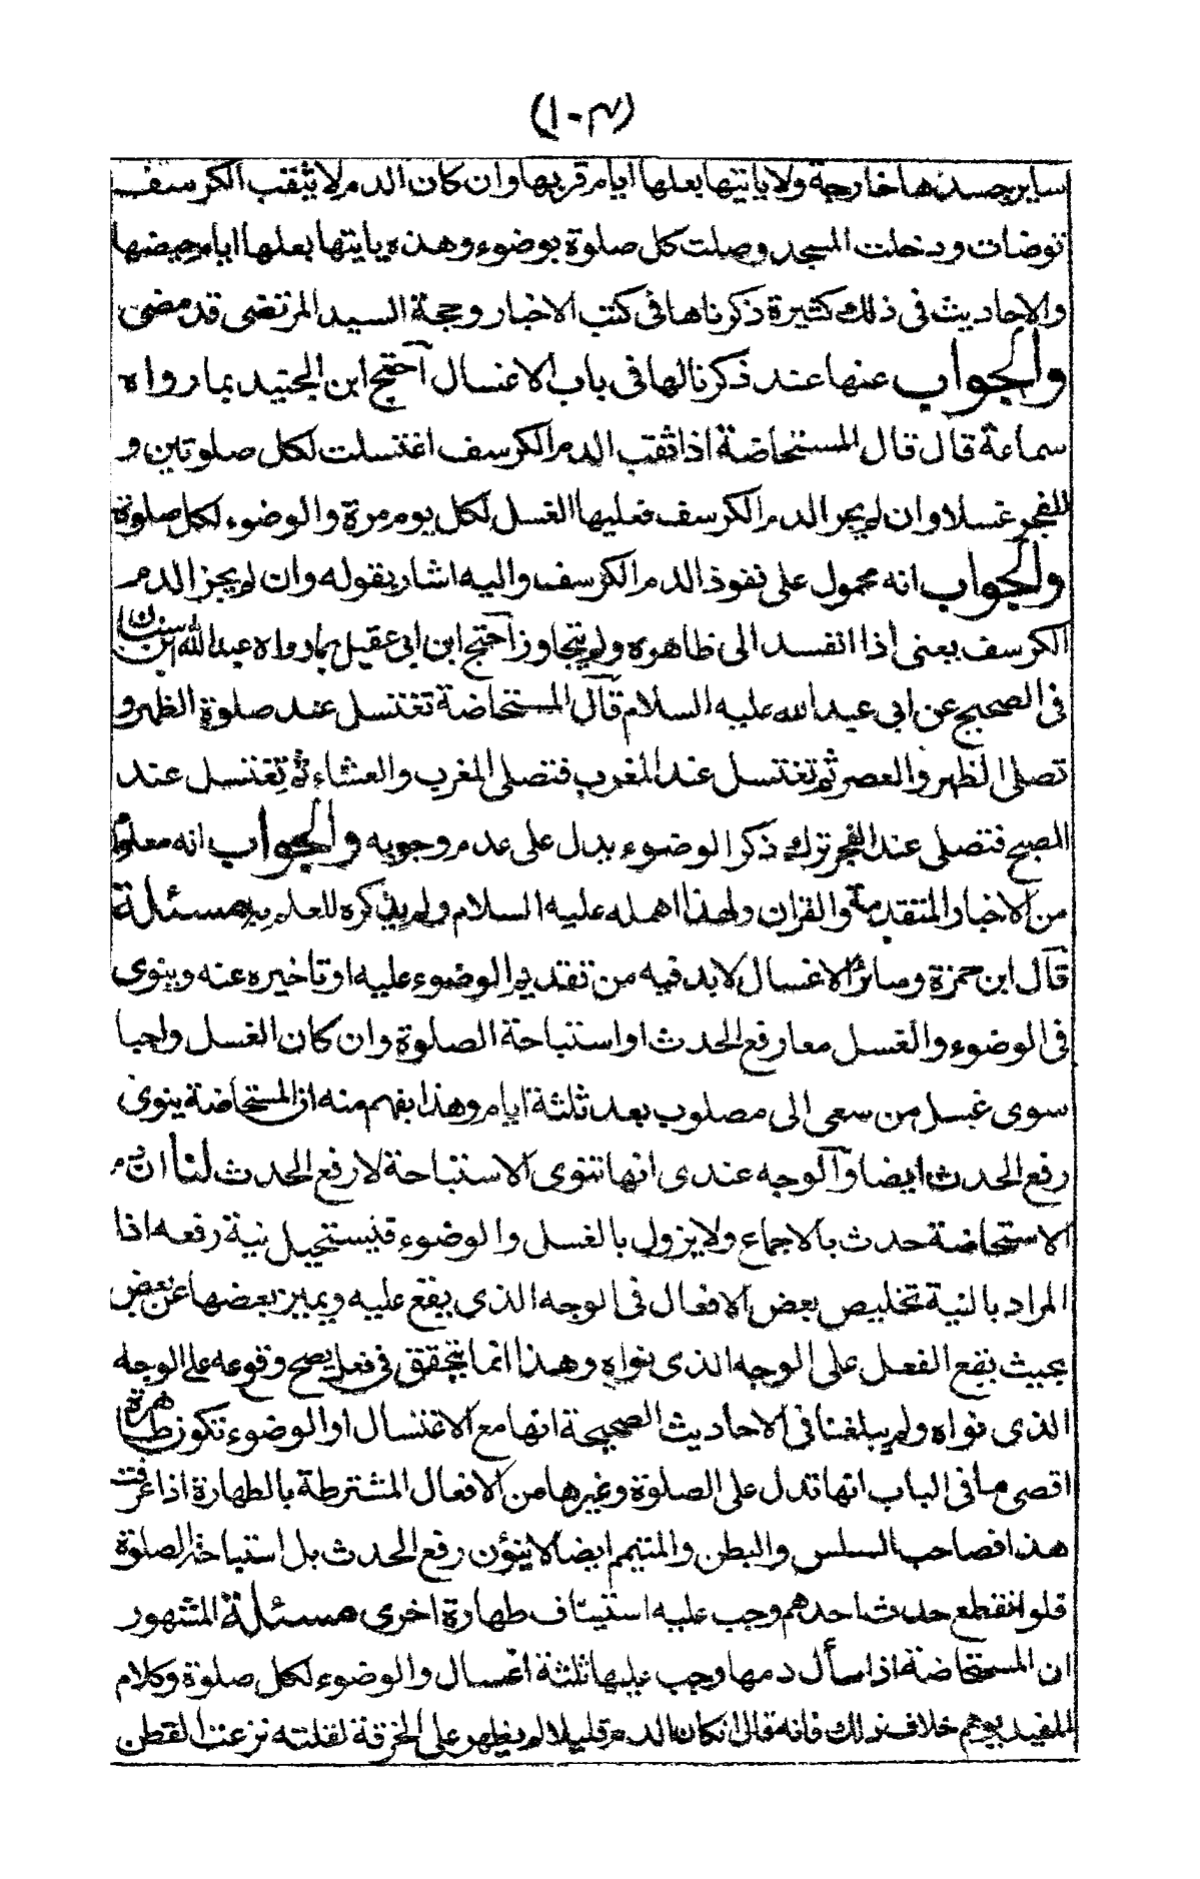 (١٠٣)
ساير جسدها خارجة ولا ياتيها بعلها ايام قربها وان كان الدم لا يثقب الكرسف
توضات ودخلت المسجد وصلت كل صلوة بوضوء وهذه ياتيها بعلها الا ايام حيضها
والاحاديث في ذلك كثيرة ذكرناها في كتب الاخبار وحجة السيد المرتضى قد مضى
والجواب عنها عند ذكرنا لها في باب الاغسال احتج ابن الجنيد بما رواه
سماعة قال قال المستحاضة اذا ثقب الدم الكرسف اغتسلت لكل صلوتين و
للفجر غسلا وان لم يجز الدم الكرسف فعليها الغسل لكل يوم مرة والوضوء لكل صلوة
والجواب انه محمول على نفوذ الدم الكرسف واليه اشار بقوله وان لم يجز الدم
الكرسف يعني اذا انفسد الى ظاهره ولم يتجاوز احتج ابن ابي عقيل بما رواه عبد الله بن سنان
في الصحيح عن ابي عبد الله عليه السلام قال المستحاضة تغتسل عند صلوة الظهر و
تصلى الظهر والعصر ثم تغتسل عند المغرب فتصلى المغرب والعشاء ثم تغتسل عند
الصبح فتصلى عند الفجر ترك ذكر الوضوء يدل على عدم وجوبه والجواب انه معلوم
من الاخبار المتقدمة والقران ولهذا اهمله عليه السلام ولم يذكره للعلم به مسئلة
قال ابن حمزة وسائر الاغسال لابد فيه من تقديم الوضوء عليه او تاخيره عنه وينوى
في الوضوء والغسل معا رفع الحدث او استباحة الصلوة وان كان الغسل واجبا
سوى غسل من سعى الى مصلوب بعد ثلثة ايام وهذا يفهم منه ان المستحاضة ينوى
رفع الحدث ايضا والوجه عندى انها تنوى الاستباحة لا رفع الحدث لنا ان دم
الاستحاضة حدث بالاجماع ولا يزول بالغسل والوضوء فيستحيل نية رفعه اذا
المراد بالنية تخليص بعض الافعال في الوجه الذى يقع عليه ويميز بعضها عن بعض
بحيث يقع الفعل على الوجه الذى نواه وهذا انما يتحقق في فعل يصح وقوعه على الوجه
الذى نواه ولم يبلغنا في الاحاديث الصحيحة انها مع الاغتسال او الوضوء تكون طاهرة
اقصى ما في الباب انها تدل على الصلوة وغيرها من الافعال المشترطة بالطهارة اذا عرفت
هذا فصاحب السلس والبطن والمتيمم ايضا لا ينوون رفع الحدث بل استباحة الصلوة
فلو انقطع حدث احدهم وجب عليه استيناف طهارة اخرى مسئلة المشهور
ان المستحاضة اذا سأل دمها وجب عليها ثلثة اغسال والوضوء لكل صلوة وكلام
المفيد يوهم خلاف ذلك فانه قال ان كان الدم قليلا لم يظهر على الخرقة لقلته نزعت القطن